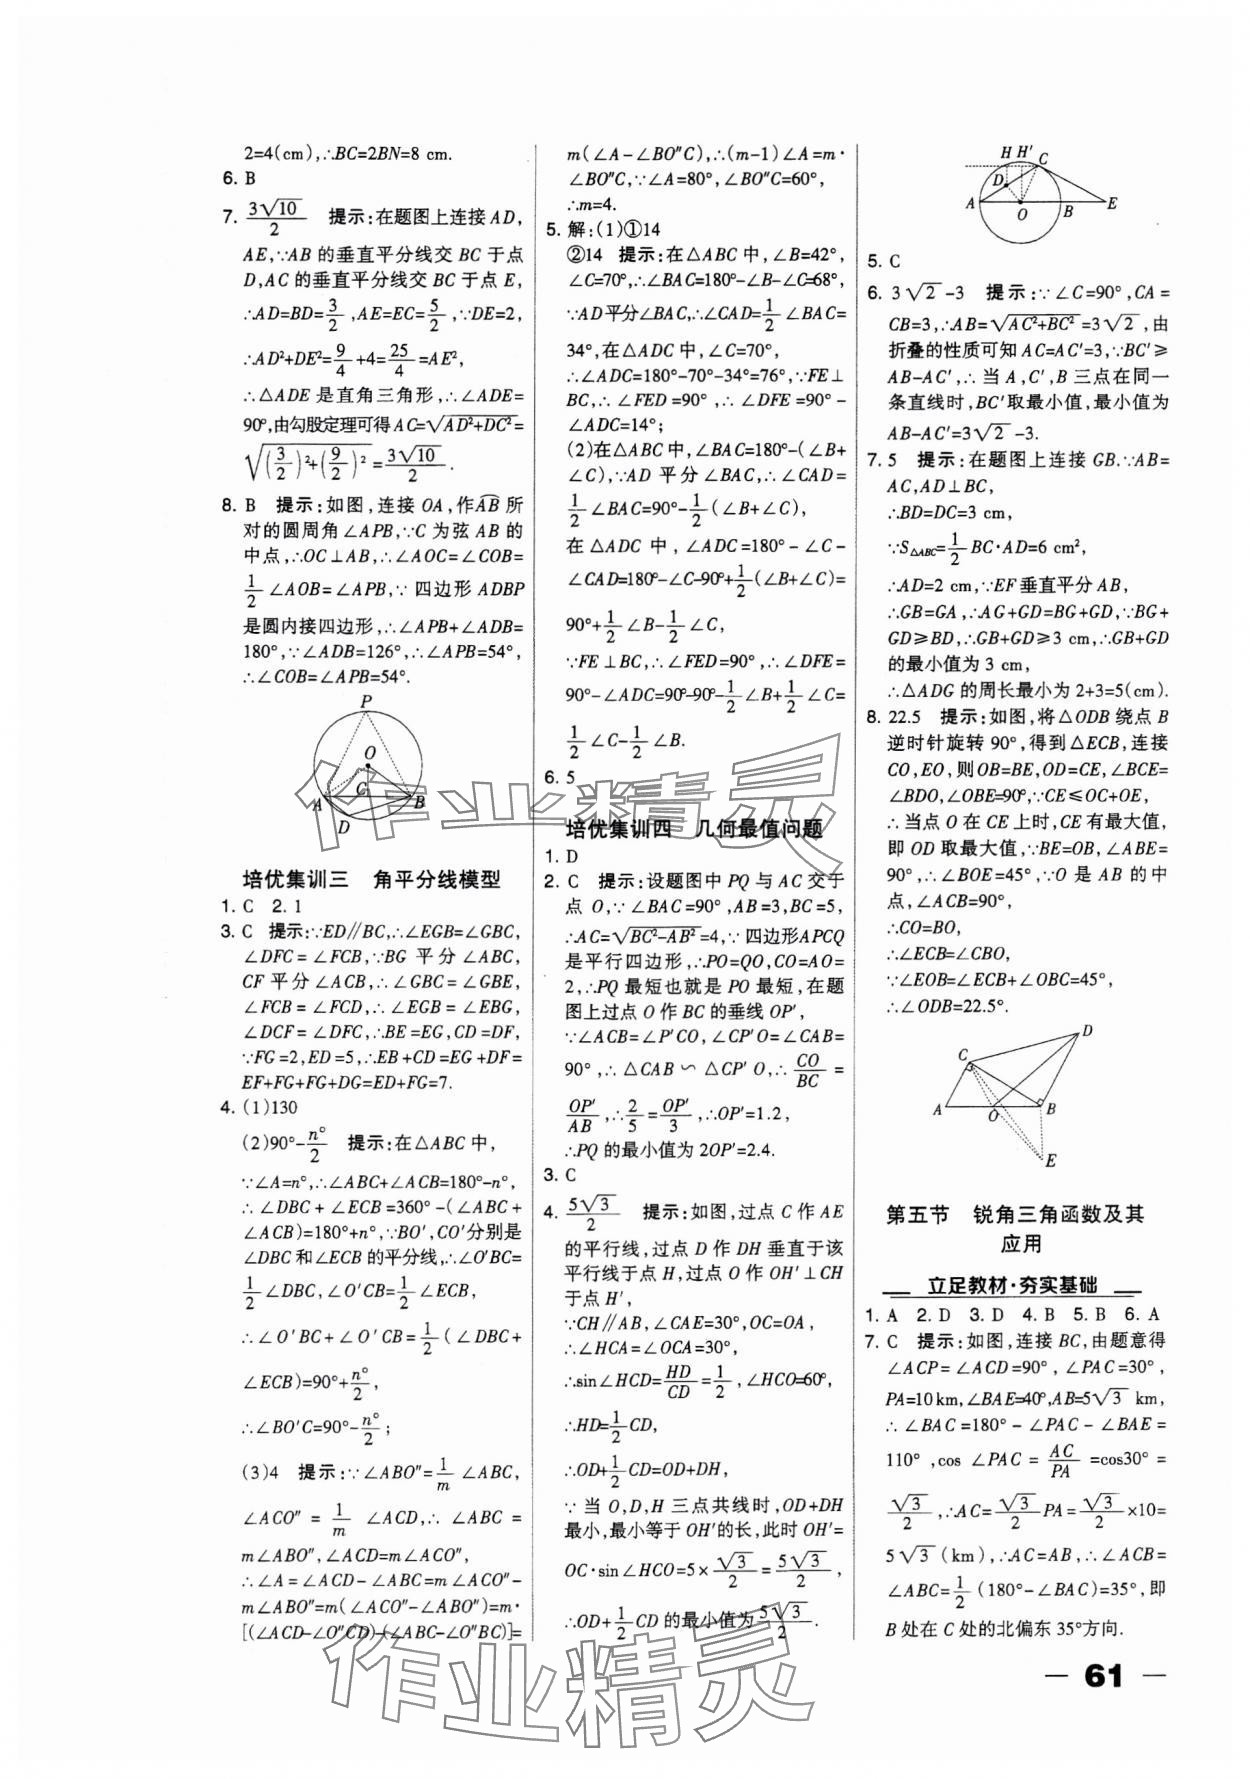 2=4(cm),∴BC=2BN=8 cm.
6. B
7. 3√10/2 提示:在题图上连接 AD,
AE,∵AB 的垂直平分线交 BC 于点
D,AC 的垂直平分线交 BC 于点 E,
∴AD=BD=3/2,AE=EC=5/2,∵DE=2,
∴AD²+DE²=9/4+4=25/4=AE²,
∴△ADE 是直角三角形,∴∠ADE=
90°,由勾股定理可得 AC=√(AD²+DC²)=
√((3/2)²+(9/2)²)=3√10/2.
8. B 提示:如图,连接 OA,作AB 所
对的圆周角∠APB,∵C 为弦 AB 的
中点,∴OC⊥AB,∴∠AOC=∠COB=
1/2∠AOB=∠APB,∵四边形 ADBP
是圆内接四边形,∴∠APB+∠ADB=
180°,∵∠ADB=126°,∴∠APB=54°,
∴∠COB=∠APB=54°.
P
O
A C B
D
培优集训三 角平分线模型
1. C 2. 1
3. C 提示:∵ED∥BC,∴∠EGB=∠GBC,
∠DFC=∠FCB,∵BG 平分∠ABC,
CF 平分∠ACB,∴∠GBC=∠GBE,
∠FCB=∠FCD,∴∠EGB=∠EBG,
∠DCF=∠DFC,∴BE=EG,CD=DF,
∵FG=2,ED=5,∴EB+CD=EG+DF=
EF+FG+FG+DG=ED+FG=7.
4. (1)130
(2)90°-n°/2 提示:在△ABC 中,
∵∠A=n°,∴∠ABC+∠ACB=180°-n°,
∴∠DBC+∠ECB=360°-(∠ABC+
∠ACB)=180°+n°,∵BO′,CO′分别是
∠DBC 和∠ECB 的平分线,∴∠O′BC=
1/2∠DBC,∠O′CB=1/2∠ECB,
∴∠O′BC+∠O′CB=1/2(∠DBC+
∠ECB)=90°+n°/2,
∴∠BO′C=90°-n°/2;
(3)4 提示:∵∠ABO″=1/m∠ABC,
∠ACO″=1/m∠ACD,∴∠ABC=
m∠ABO″,∠ACD=m∠ACO″,
∴∠A=∠ACD-∠ABC=m∠ACO″-
m∠ABO″=m(∠ACO″-∠ABO″)=m·
[(∠ACD-∠O″CD)-(∠ABC-∠O″BC)]=
m(∠A-∠BO″C),∴(m-1)∠A=m·
∠BO″C,∵∠A=80°,∠BO″C=60°,
∴m=4.
5. 解:(1)①14
②14 提示:在△ABC 中,∠B=42°,
∠C=70°,∴∠BAC=180°-∠B-∠C=68°,
∵AD平分∠BAC,∴∠CAD=1/2∠BAC=
34°,在△ADC 中,∠C=70°,
∴∠ADC=180°-70°-34°=76°,∵FE⊥
BC,∴∠FED=90°,∴∠DFE=90°-
∠ADC=14°;
(2)在△ABC 中,∠BAC=180°-(∠B+
∠C),∵AD 平分∠BAC,∴∠CAD=
1/2∠BAC=90°-1/2(∠B+∠C),
在△ADC 中,∠ADC=180°-∠C-
∠CAD=180°-∠C-90°+1/2(∠B+∠C)=
90°+1/2∠B-1/2∠C,
∵FE⊥BC,∴∠FED=90°,∴∠DFE=
90°-∠ADC=90°-90°-1/2∠B+1/2∠C=
1/2∠C-1/2∠B.
6. 5
培优集训四 几何最值问题
1. D
2. C 提示:设题图中 PQ 与 AC 交于
点 O,∵∠BAC=90°,AB=3,BC=5,
∴AC=√(BC²-AB²)=4,∵四边形APCQ
是平行四边形,∴PO=QO,CO=AO=
2,∴PQ 最短也就是 PO 最短,在题
图上过点 O 作 BC 的垂线 OP′,
∵∠ACB=∠P′CO,∠CP′O=∠CAB=
90°,∴△CAB∽△CP′O,∴CO/BC=
OP′/AB,∴2/5=OP′/3,∴OP′=1.2,
∴PQ 的最小值为 2OP′=2.4.
3. C
4. 5√3/2 提示:如图,过点 C 作 AE
的平行线,过点 D 作 DH 垂直于该
平行线于点 H,过点 O 作 OH′⊥CH
于点 H′,
∵CH∥AB,∠CAE=30°,OC=OA,
∴∠HCA=∠OCA=30°,
∴sin∠HCD=HD/CD=1/2,∠HCO=60°,
∴HD=1/2CD,
∴OD+1/2CD=OD+DH,
∵当 O,D,H 三点共线时,OD+DH
最小,最小等于 OH′的长,此时 OH′=
OC·sin∠HCO=5×√3/2=5√3/2,
∴OD+1/2CD 的最小值为5√3/2.
H H′ C
D
A O B E
5. C
6. 3√2-3 提示:∵∠C=90°,CA=
CB=3,∴AB=√(AC²+BC²)=3√2,由
折叠的性质可知 AC=AC′=3,∵BC′≥
AB-AC′,∴当 A,C′,B 三点在同一
条直线时,BC′取最小值,最小值为
AB-AC′=3√2-3.
7. 5 提示:在题图上连接 GB.∵AB=
AC,AD⊥BC,
∴BD=DC=3 cm,
∵S△ABC=1/2BC·AD=6 cm²,
∴AD=2 cm,∵EF 垂直平分 AB,
∴GB=GA,∴AG+GD=BG+GD,∵BG+
GD≥BD,∴GB+GD≥3 cm,∴GB+GD
的最小值为 3 cm,
∴△ADG 的周长最小为 2+3=5(cm).
8. 22.5 提示:如图,将△ODB 绕点 B
逆时针旋转 90°,得到△ECB,连接
CO,EO,则 OB=BE,OD=CE,∠BCE=
∠BDO,∠OBE=90°,∵CE≤OC+OE,
∴当点 O 在 CE 上时,CE 有最大值,
即 OD 取最大值,∵BE=OB,∠ABE=
90°,∴∠BOE=45°,∵O 是 AB 的中
点,∠ACB=90°,
∴CO=BO,
∴∠ECB=∠CBO,
∵∠EOB=∠ECB+∠OBC=45°,
∴∠ODB=22.5°.
D
C
A O B
E
第五节 锐角三角函数及其
应用
立足教材·夯实基础
1. A 2. D 3. D 4. B 5. B 6. A
7. C 提示:如图,连接 BC,由题意得
∠ACP=∠ACD=90°,∠PAC=30°,
PA=10 km,∠BAE=40°,AB=5√3 km,
∴∠BAC=180°-∠PAC-∠BAE=
110°,cos∠PAC=AC/PA=cos30°=
√3/2,∴AC=√3/2PA=√3/2×10=
5√3(km),∴AC=AB,∴∠ACB=
∠ABC=1/2(180°-∠BAC)=35°,即
B 处在 C 处的北偏东 35°方向.
— 61 —
作业精灵
作业精灵